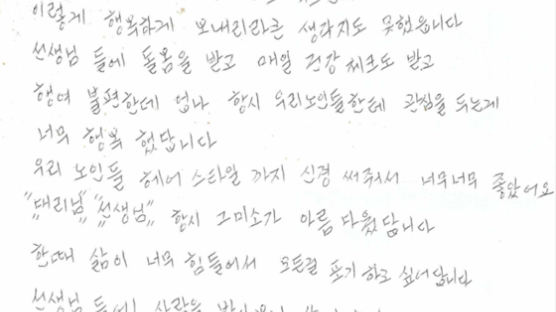 이렇게 행복하게 보내리라곤 생각지도 못했읍니다
선생님 들에 돌봄을 받고 매일 건강 체크도 받고
행여 불편한데 업나 항시 우리노인들한테 관심을 두는게
너무 행복 했답니다
우리 노인들 헤어 스타일 까지 신경 써주셔서 너무너무 좋았어요
"대리님" "선생님" 항시 그미소가 아름 다웠답니다
한때 삶이 너무 힘들어서 모든걸 포기 하고 싶어답니다
선생님 들에 사랑을